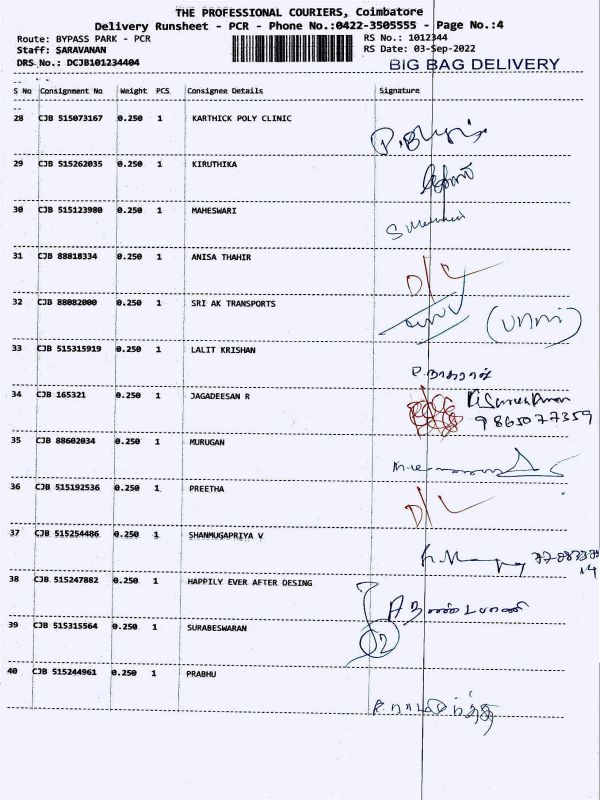 THE PROFESSIONAL COURIERS, Coimbatore
Delivery Runsheet - PCR - Phone No.:0422-3505555 - Page No.:4
Route: BYPASS PARK - PCR RS No.: 1012344
Staff: SARAVANAN RS Date: 03-Sep-2022
DRS No.: DCJB101234404 BIG BAG DELIVERY
S No Consignment No Weight PCS Consignee Details Signature
28 CJB 515073167 0.250 1 KARTHICK POLY CLINIC
29 CJB 515262035 0.250 1 KIRUTHIKA
30 CJB 515123980 0.250 1 MAHESWARI
31 CJB 88818334 0.250 1 ANISA THAHIR D/L
32 CJB 88082000 0.250 1 SRI AK TRANSPORTS
33 CJB 515315919 0.250 1 LALIT KRISHAN
34 CJB 165321 0.250 1 JAGADEESAN R
9865077359
35 CJB 88602034 0.250 1 MURUGAN
36 CJB 515192536 0.250 1 PREETHA D/L
37 CJB 515254486 0.250 1 SHANMUGAPRIYA V
38 CJB 515247882 0.250 1 HAPPILY EVER AFTER DESING
39 CJB 515315564 0.250 1 SURABESWARAN
40 CJB 515244961 0.250 1 PRABHU